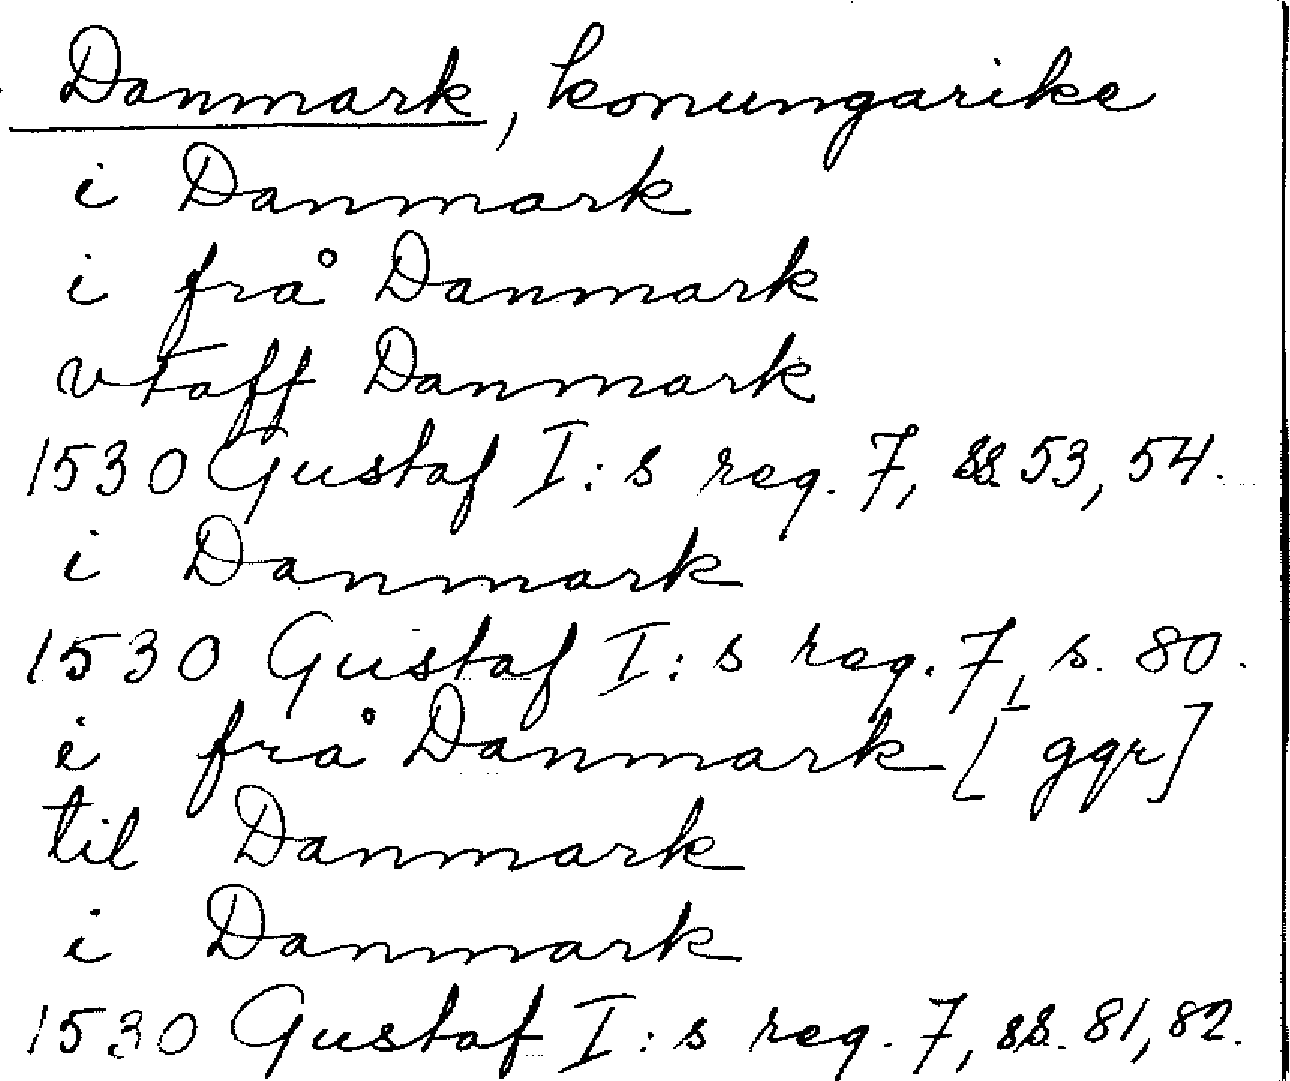 Danmark, konungarike
i Danmark
i frå Danmark
vtaff Danmark
1530 Gustaf I:s reg. 7, ss 53, 54.
i Danmark
1530 Gustaf I:s reg. 7, s. 80.
i frå Danmark [ ggr]
til Danmark
i Danmark
1530 Gustaf I:s reg. 7, ss. 81, 82.